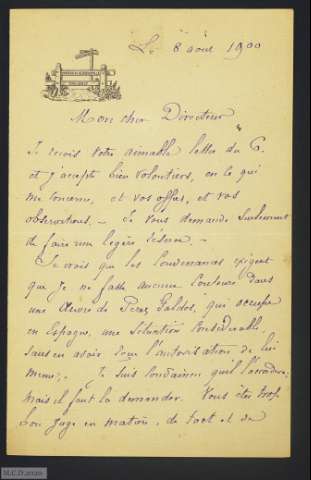 Le 8 août 1900
Mon cher Directeur
Je reçois votre aimable lettre du 6.
et j'accepte bien volontiers, en ce qui
me concerne, et vos offres, et vos
observations. — Je vous demande seulement
de faire une légère réserve. —
Je crois que les convenances exigent
que je ne fasse aucune coupure dans
une Œuvre de Perez Galdos, qui occupe
en Espagne, une situation considérable,
sans en avoir reçu l'autorisation de lui
même. — Je suis convaincu qu'il l'accordera;
mais il faut la demander. Vous êtes trop
bon juge en matière, de tact et de
M.C.D. 2020